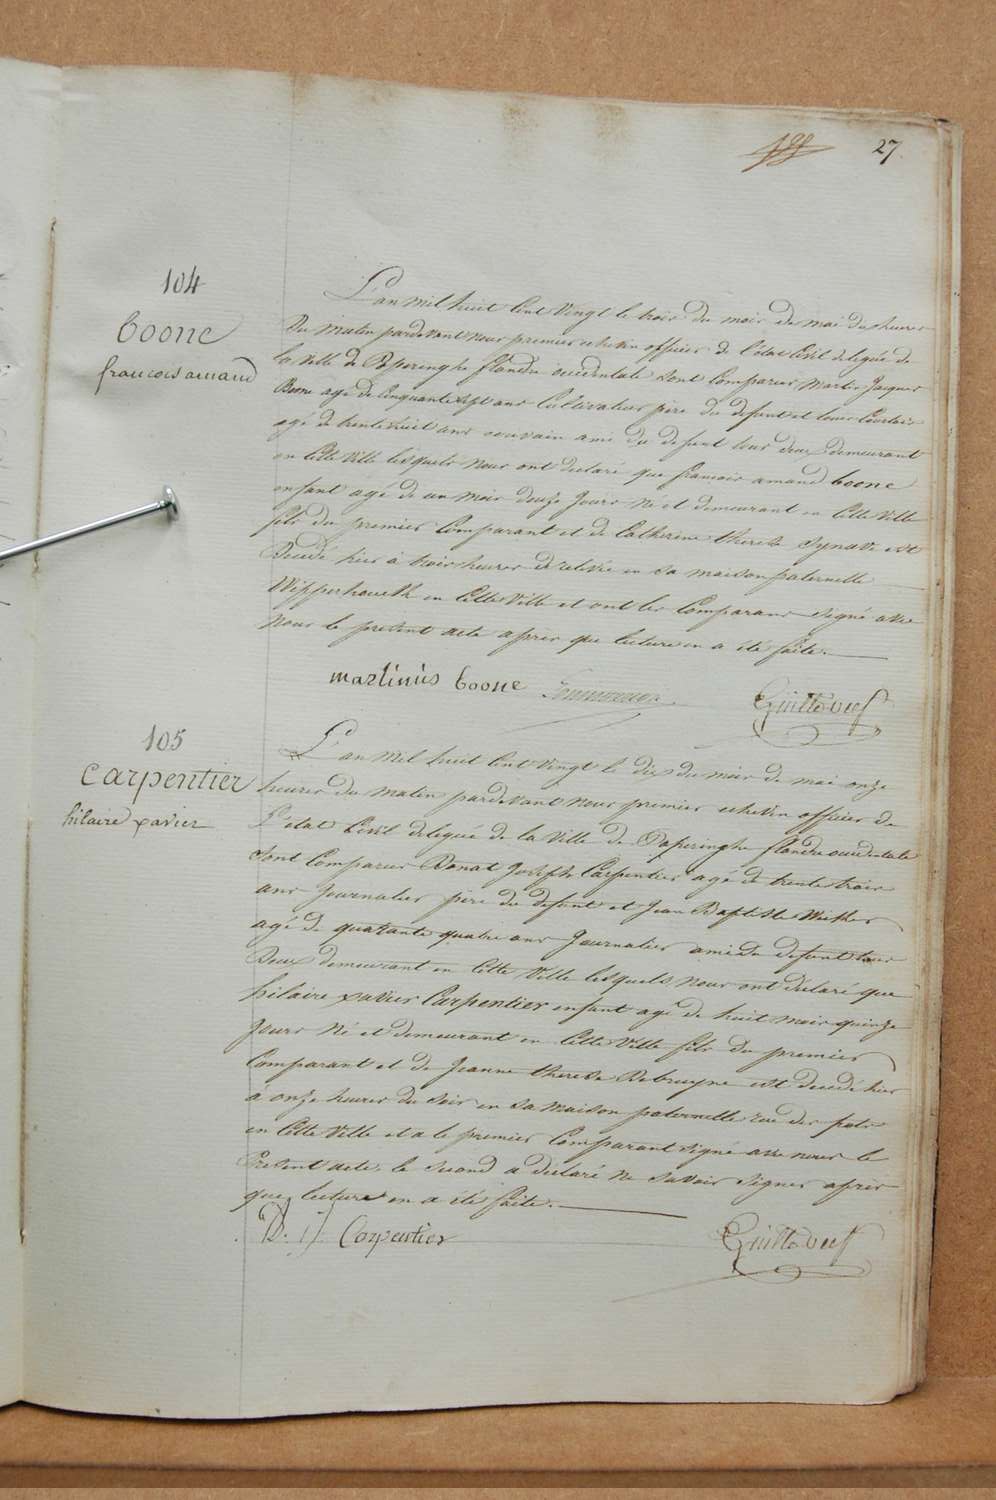 27.
104
boone
francois amand
L'an mil huit Cent Vingt le trois du mois de mai dix heures
du matin pardevant nous premier echevin officier de l'état Civil delegué de
la Ville de Poperinghe flandre occidentale sont Comparus Martin Jacques
Boone agé de Cinquante sept ans Cultivateur père du defunt et
agé de trente huit ans ami du defunt tous deux demeurant
en Cette Ville lesquels nous ont declaré que francois amand boone
enfant agé de un mois douze Jours né et demeurant en Cette Ville
fils du premier Comparant et de Catherine therese Synave est
decedé hier à trois heures de relevée en sa maison paternelle
Wipperhouck en Cette Ville et ont les Comparans signé avec
nous le present acte après que lecture en a été faite.
martinus boone
105
Carpentier
hilaire xavier
L'an mil huit Cent Vingt le dix du mois de mai onze
heures du matin pardevant nous premier echevin officier de
L'état Civil delegué de la Ville de Poperinghe flandre occidentale
sont Comparus Donat Joseph Carpentier agé de trente trois
ans Journalier père du defunt et Jean Baptiste
agé de quarante quatre ans Journalier ami du defunt tous
Deux demeurant en Cette Ville lesquels nous ont déclaré que
hilaire xavier Carpentier enfant agé de huit mois quinze
Jours Né et demeurant en Cette Ville fils du premier
Comparant et de Jeanne therese Debruyne est decedé hier
à onze heures du soir en sa maison paternelle rue des pots
en Cette Ville et a le premier Comparant signé avec nous le
Present acte, le second a déclaré ne savoir signer après
que lecture en a été faite.
D. J. Carpentier